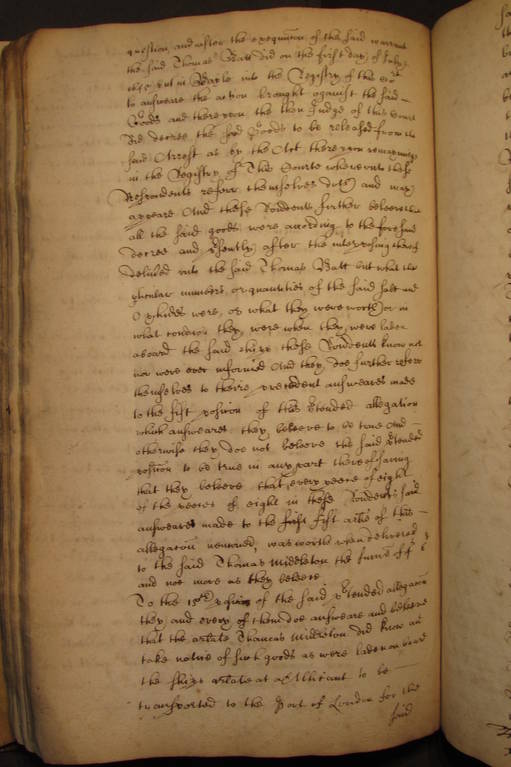 question, and after the exequution of the said warrant
the said Thomas Batt did on the first day of July
put in Bayle into the Registry of the
to answeare the action brought against the said
Goods and thereupon the then Judge of this Court
did decree the said Goods to be released from the
said Arrest as by the Act thereupon remayning
in the Registry of this Courte whereunto these
Respondents referr themselves doth and may
appeare And these Rondents further beleeve that
all the said goods were according to the foresaid
decree and psently after the interposing thereof
delived unto the said Thomas Batt but what the
pticular numbers, or quantities of the said salt and
Oxhides were, or what they were worth or in
what condicon they were when they were laden
aboard the said shipp these Rondents know not
nor were ever informed And they doe further referr
themselves to theire precedent answeares made
to the fift posicon of this ptended allegation
which answeares they beleeve to be true And
otherwise they doe not beleeve the said ptended
posicon to be true in any part thereof saving
that they beleeve that every peece of eight
of the peeces of eight in these Rondents said
answeares made to the first arle of this
allegacon mencioned, was worth when delivered
to the said Thomas Middleton the summe of
and not more as they beleeve
To the 15th posicon of the said ptended allegacon
they and every of them doe answeare and beleeve
that the arlate Thomas Middleton did know and
take notice of such goods as were laden on board
the shipp arlate at Allicant to be
transported to the Port of London for the
said